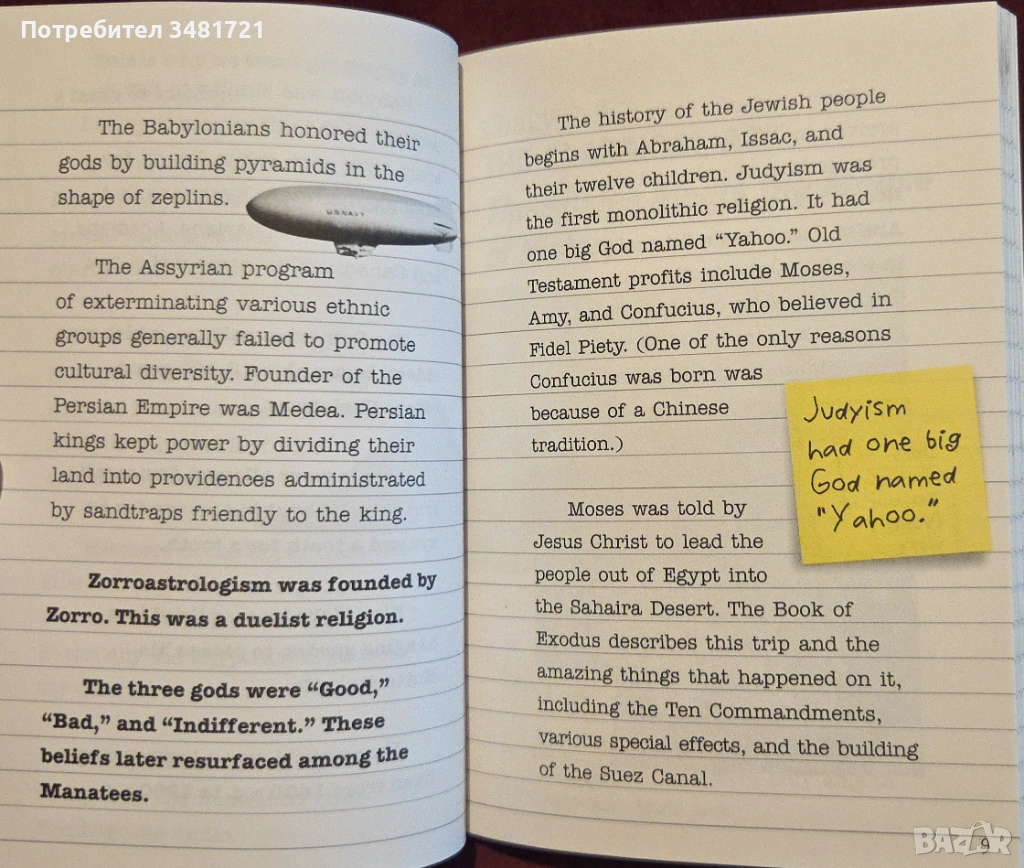 Потребител 3481721
The Babylonians honored their
gods by building pyramids in the
shape of zeplins.
U.S.NAVY
The Assyrian program
of exterminating various ethnic
groups generally failed to promote
cultural diversity. Founder of the
Persian Empire was Medea. Persian
kings kept power by dividing their
land into providences administrated
by sandtraps friendly to the king.
Zorroastrologism was founded by
Zorro. This was a duelist religion.
The three gods were “Good,”
“Bad,” and “Indifferent.” These
beliefs later resurfaced among the
Manatees.
The history of the Jewish people
begins with Abraham, Issac, and
their twelve children. Judyism was
the first monolithic religion. It had
one big God named “Yahoo.” Old
Testament profits include Moses,
Amy, and Confucius, who believed in
Fidel Piety. (One of the only reasons
Confucius was born was
because of a Chinese
tradition.)
Judyism
had one big
God named
"Yahoo."
Moses was told by
Jesus Christ to lead the
people out of Egypt into
the Sahaira Desert. The Book of
Exodus describes this trip and the
amazing things that happened on it,
including the Ten Commandments,
various special effects, and the building
of the Suez Canal.
9
BAZAR